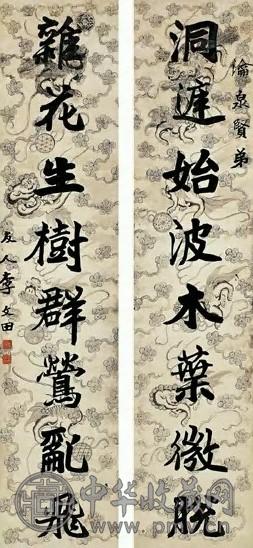 倫泉賢弟
洞庭始波木葉微脫
雜花生樹群鶯亂飛
友人李文田
中华收藏网